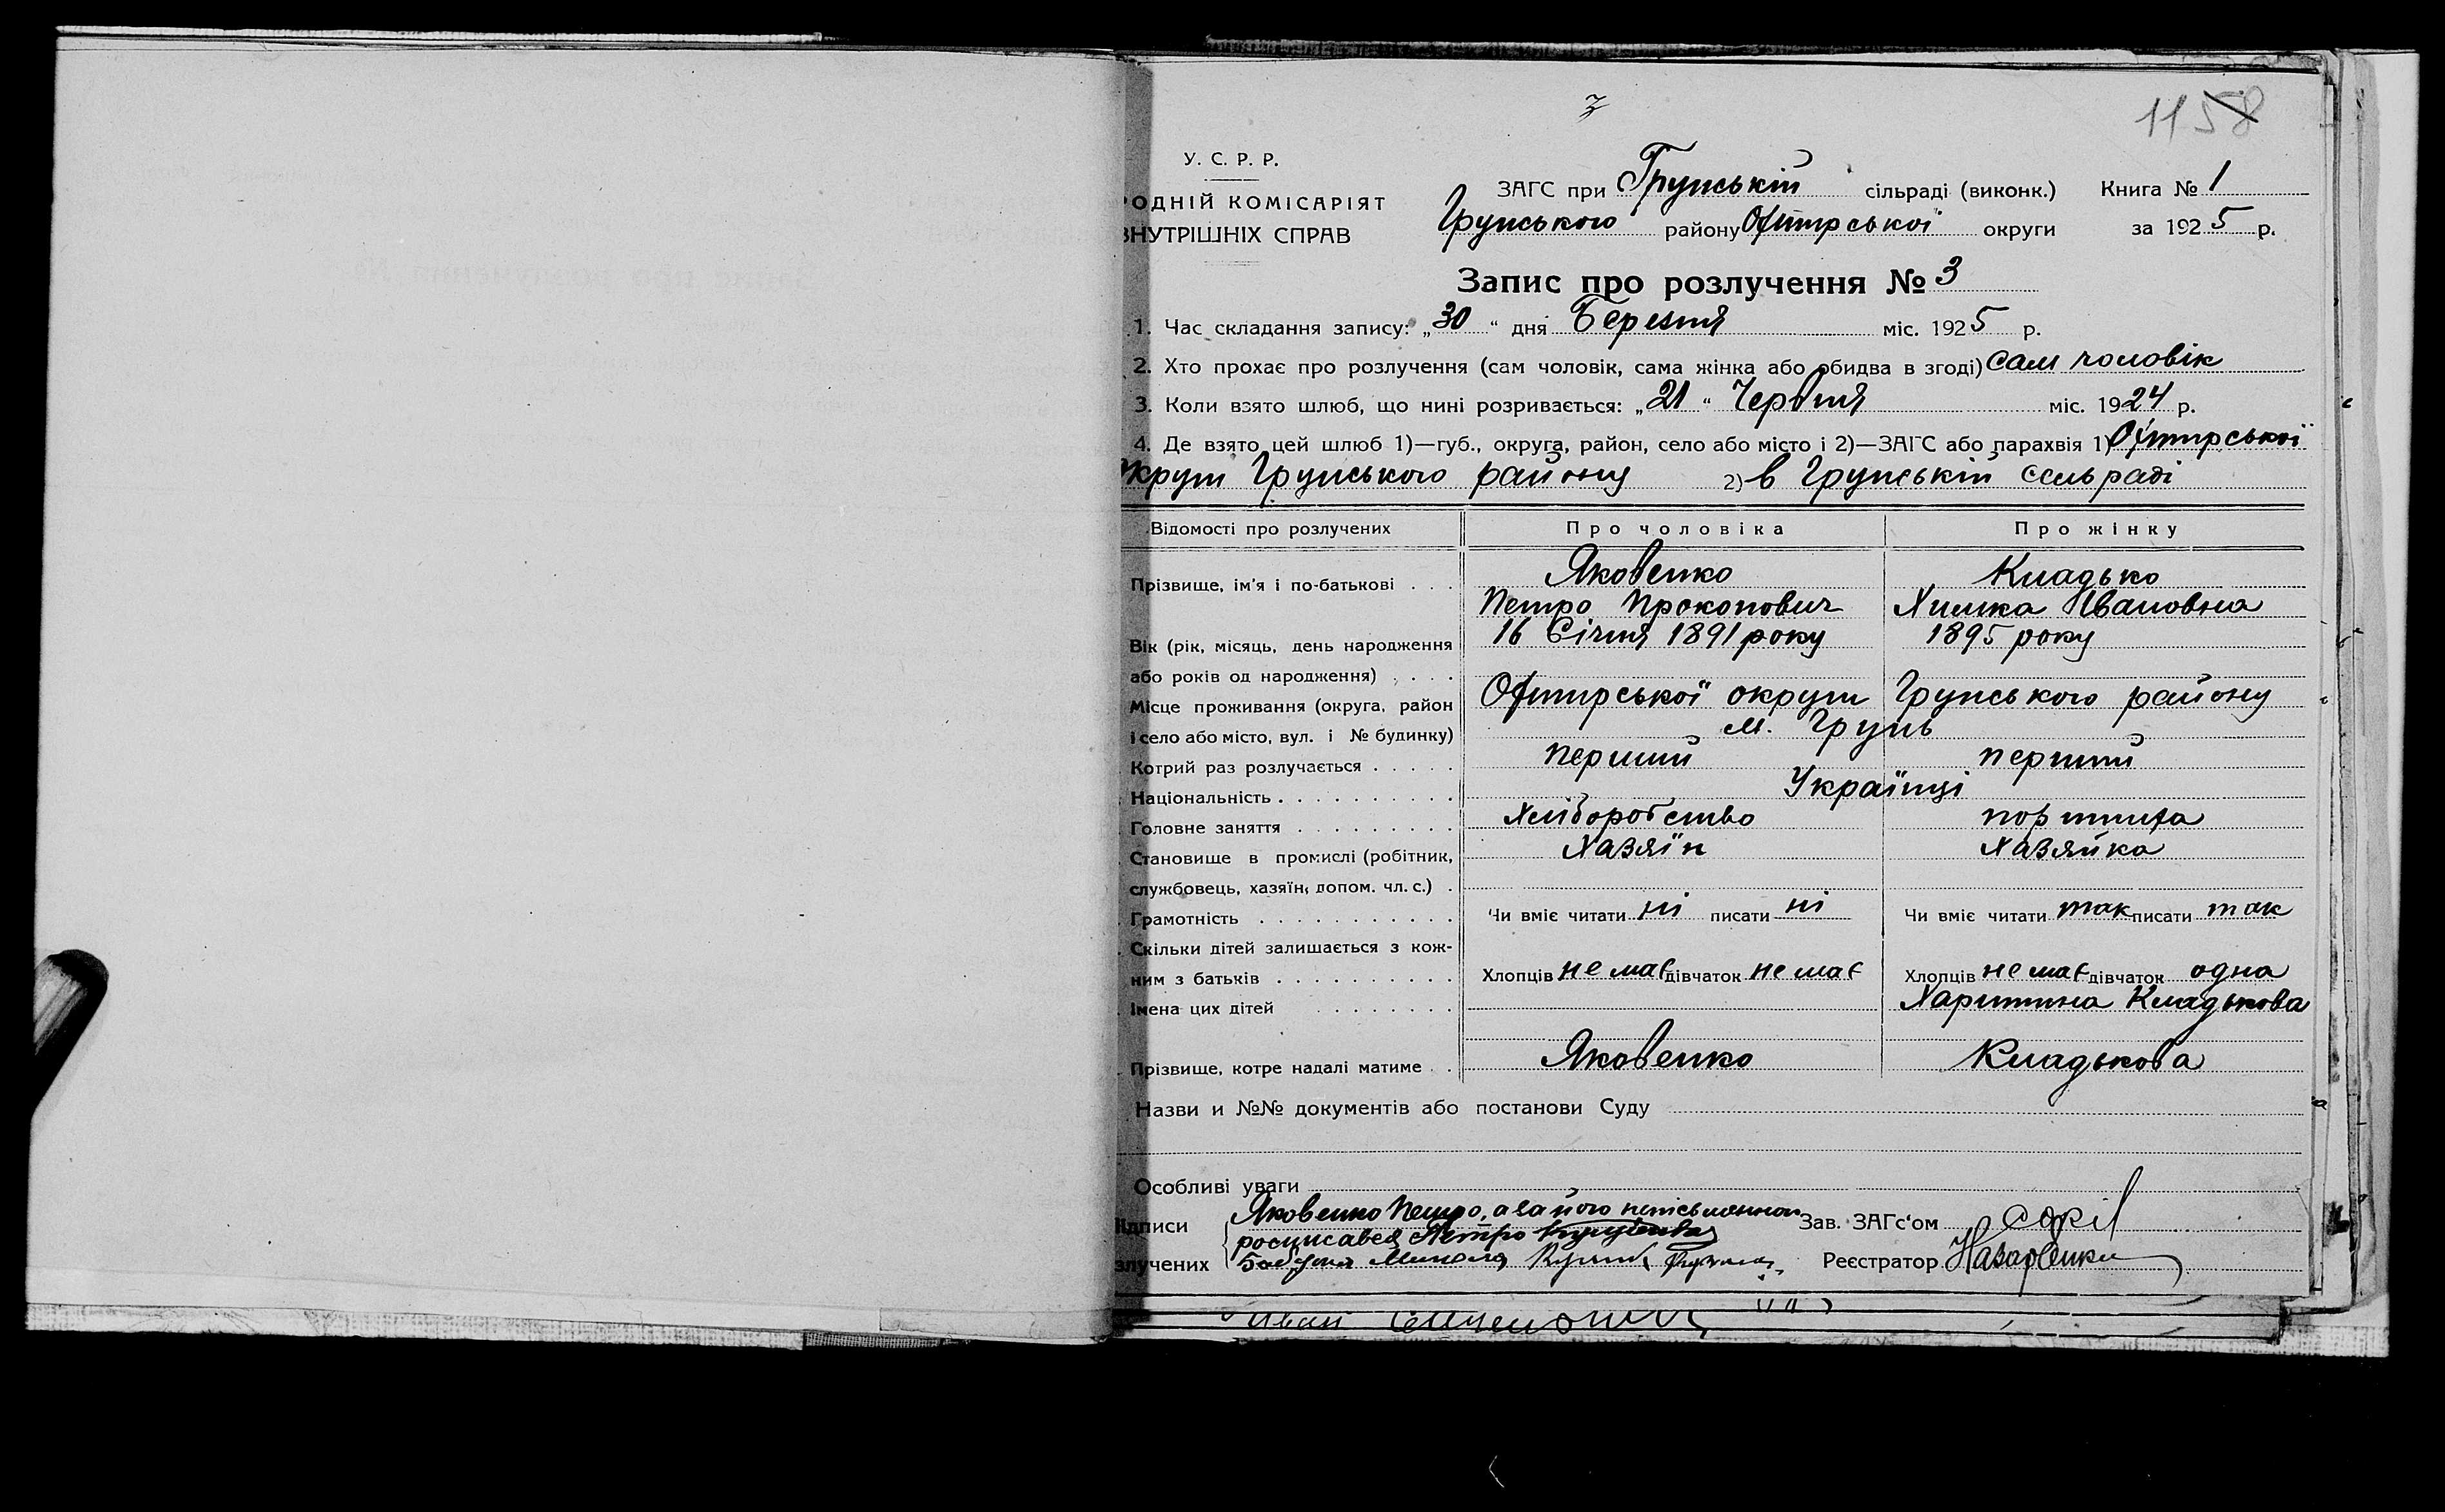 3
1158
У. С. Р. Р.
РОДНІЙ КОМІСАРІЯТ
ВНУТРІШНІХ СПРАВ
ЗАГС при Грунській сільраді (виконк.) Книга № 1
Грунського району Охтирської округи за 1925 р.
Запис про розлучення № 3
1. Час складання запису: „30“ дня Березня міс. 1925 р.
2. Хто прохає про розлучення (сам чоловік, сама жінка або обидва в згоді) сам чоловік
3. Коли взято шлюб, що нині розривається: „21“ Червня міс. 1924 р.
4. Де взято цей шлюб 1)—губ., округа, район, село або місто і 2)—ЗАГС або парахвія 1) Охтирської
округи Грунського району 2) в Грунській сельраді
Відомості про розлучених Про чоловіка Про жінку
Прізвище, ім'я і по-батькові . . . Яковенко Кладько
Петро Прокопович Химка Ивановна
Вік (рік, місяць, день народження 16 Січня 1891 року 1895 року
або років од народження) . . . .
Місце проживання (округа, район Охтирської округи Грунського району
і село або місто, вул. і № будинку) м. Грунь
Котрий раз розлучається . . . . . перший перший
Національність . . . . . . . . . . Українці
Головне заняття . . . . . . . . . Хліборобство портниха
Становище в промислі (робітник, Хазяїн Хазяйка
службовець, хазяїн, допом. чл. с.) .
Грамотність . . . . . . . . . . . Чи вміє читати ні писати ні Чи вміє читати так писати так
Скільки дітей залишається з кож-
ним з батьків . . . . . . . . . . Хлопців немає дівчаток немає Хлопців немає дівчаток одна
Імена цих дітей . . . . . . . . Харитина Кладькова
Прізвище, котре надалі матиме . . Яковенко Кладькова
Назви и №№ документів або постанови Суду
Особливі уваги
Підписи Яковенко Петро, а за його неписьменном Зав. ЗАГС'ом
росписався Петро
злучених Микола Реєстратор Назаренко